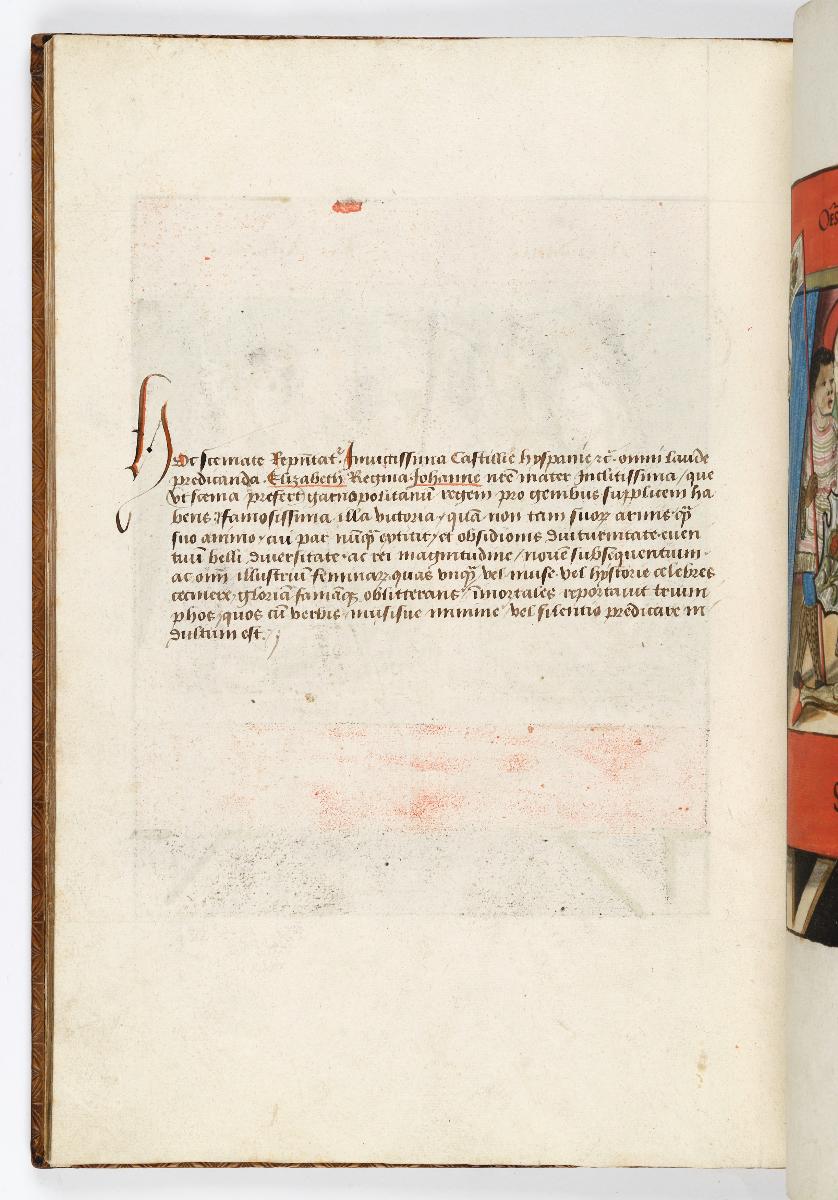 Hoc scemate Rep̄ntat᷑ Invictissima Castillie hyspanie ⁊c̄. omni laude
predicanda. Elizabeth Regina. Johanne nr̄e mater Inclitissima / que
vt scema prefert garnopolitanū regem pro genibus supplicem ha
bens / famosissima illa victoria / quā non tam suoꝝ armis qꝫ̄
suo animo / cui par nūqꝫ̄ extitit / et obsidionis diuturnitate. euen
tuū belli diuersitate. ac rei magnitudine / nouē subsequentium.
ac om̄i illustriū feminaꝝ. quas vnqꝫ̄ vel muse vel hystorie celebres
cecinere / gloriā famāqꝫ oblitterans / īmortales reportauit trium
phos / quos cū verbis / musisue minime / vel silentio predicare in
dultum est. /